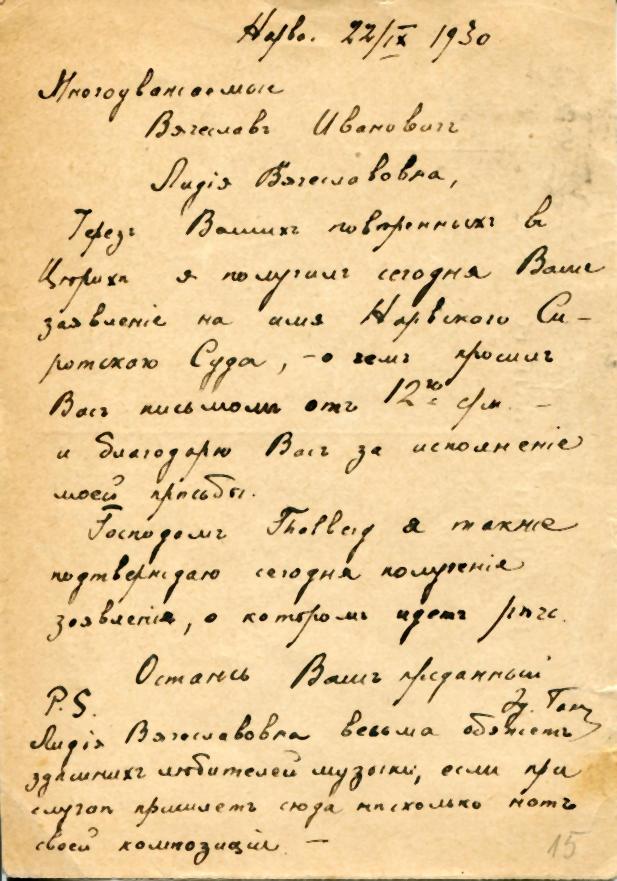 Нарва. 22/IX 1930
Многоуважаемые
Вячеславъ Ивановичъ
Лидія Вячеславовна,
Черезъ Вашихъ повѣренныхъ въ
Цюрихѣ я получилъ сегодня Ваше
заявленіе на имя Нарвскаго Си-
ротскаго Суда, – о чемъ просилъ
Васъ письмомъ отъ 12го с/м. –
и благодарю Васъ за исполненіе
моей просьбы.
Господамъ Thalberg я также
подтверждаю сегодня полученіе
заявленія, о которомъ идетъ рѣчь.
Остаюсь Вашъ преданный
P.S.
Лидія Вячеславовна весьма обяжетъ
здѣшнихъ любителей музыки, если при
случаѣ пришлетъ сюда нѣсколько нотъ
своей композиціи. –
15